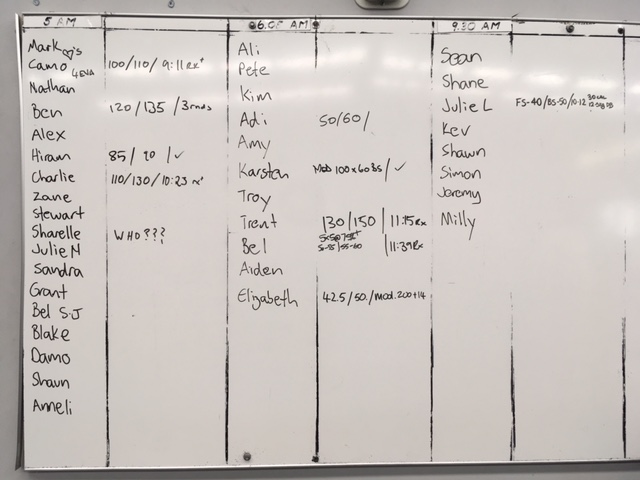 5 AM
Mark
Camo 4EVA 100/110/ 9:11 Rx+
Nathan
Ben 120/135/3rnds
Alex
Hiram 85/90/✓
Charlie 110/130/10:23 rx+
Zane
Stewart
Sharelle WHO???
Julie M
Sandra
Grant
Bel S-J
Blake
Damo
Shaun
Anneli
AM
Ali
Pete
Kim
Adi 50/60/
Amy
Karsten MOD 100x60 BS/✓
Troy
Trent 130/150 | 11:15 Rx
Bel | 11:39 Rx
Aiden
Elizabeth 42.5/50/mod.200+14
9.30 AM
Sean
Shane
Julie L FS-40/BS-50/10-12
Kev
Shawn
Simon
Jeremy
Milly